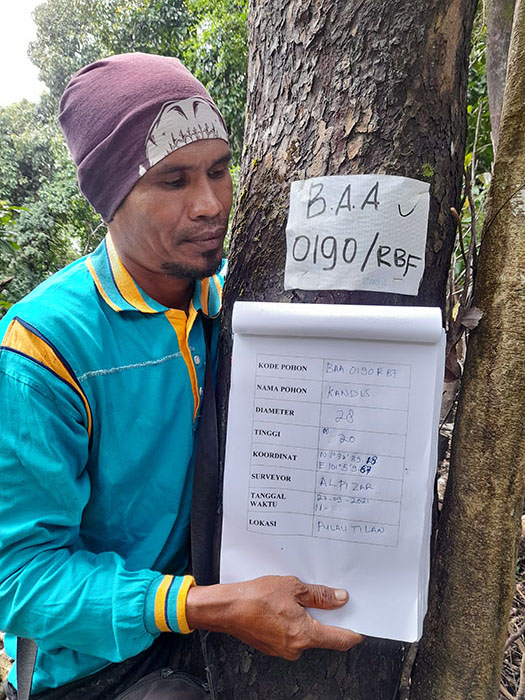 B.A.A
0190/RBF
KODE POHON BAA 0190 RBF
NAMA POHON KANDIS
DIAMETER 28
TINGGI 20
KOORDINAT
SURVEYOR ALPIZAR
TANGGAL 27-09-2021
WAKTU
LOKASI PULAU TILAN